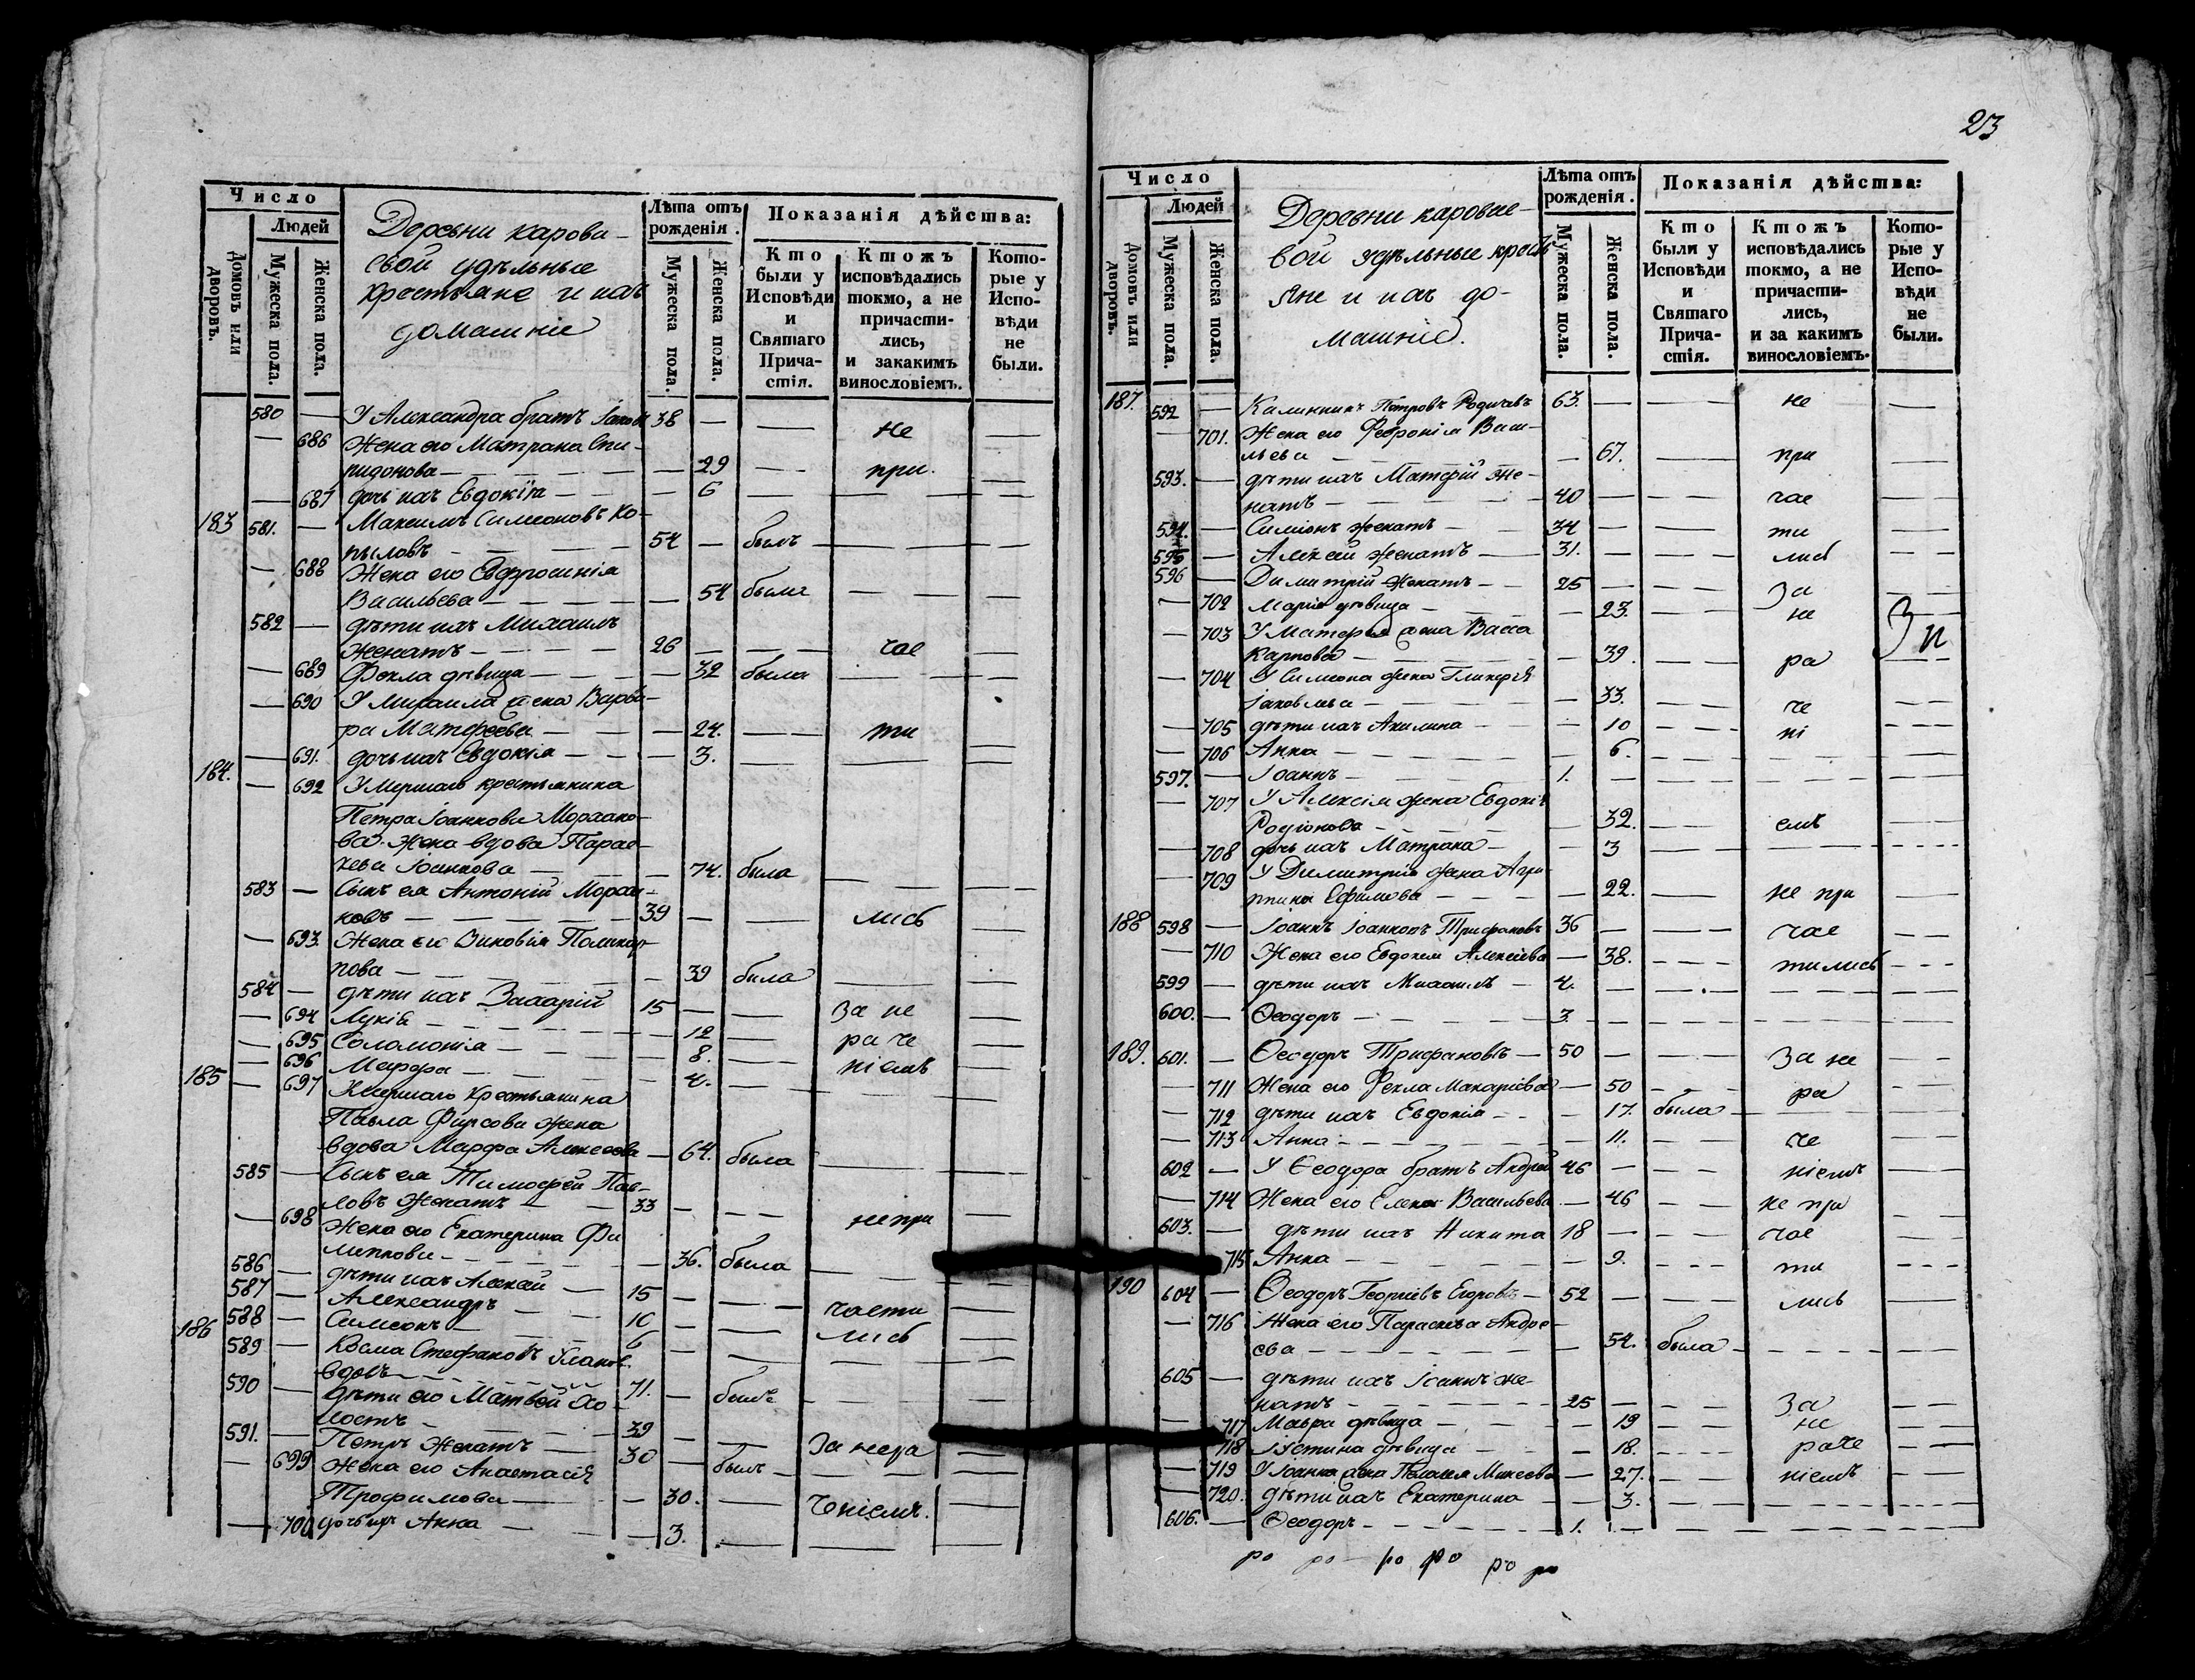 23
Число
Людей
Домовъ или дворовъ.
Мужеска пола.
Женска пола.
Деревни карова-
евой удѣльные
крестьяне и ихъ
домашніе
Лѣта отъ рожденія.
Мужеска пола.
Женска пола.
Показанія дѣйства:
Кто были у Исповѣди и Святаго Причастія.
Ктожъ исповѣдались токмо, а не причастились, и закакимъ винословіемъ.
Которые у Исповѣди не были.
580 — У Александра братъ Іаковъ 38 — — не —
— 686 Жена его Матрона Спи-
ридонова — — 29 — при —
— 687 дочь ихъ Евдокія — — 6 — — —
183 581. — Максимъ Симеоновъ Ко-
пыловъ — 54 — былъ — —
— 688 Жена его Евфросинія
Васильева — — 54 была — —
582 — дѣти ихъ Михаилъ
женатъ — 26 — — час —
— 689 Фекла дѣвица — — 32 была — —
— 690 У Михаила жена Варва-
ра Матфеева — — 24. — ти —
— 691. дочь ихъ Евдокія — — 3. — — —
184. — 692 Умершаго крестьянина
Петра Іоаннова
жена вдова Парас-
кева Іоаннова — 74. была — —
583 — Сынъ ея Антоній
новъ — 39 — — лись —
— 693. Жена его Поликар-
пова — — 39 была — —
584 — дѣти ихъ Захарій 15 — — за не —
— 694 Лукія — — 12 — ра че —
— 695 Соломонія — — 8. — ніемъ —
— 696 Марфа — — 4. — — —
185 — 697 Умершаго крестьянина
Павла Фирсова жена
вдова Марфа Алексеева — 64. была — —
585 — Сынъ ея Тимофей Пав-
ловъ женатъ — 33 — — не при —
— 698 Жена его Екатерина Фи
липпова — — 36. была — —
586 — дѣти ихъ Алексей — 15 — — — —
587 — Александръ — 10 — — части —
588 — Симеонъ — 6 — — лись —
186 589 — Косма Стефановъ
вдовъ — 71. — былъ — —
590 — дѣти его Матвей хо-
лостъ — 39 — — за нера —
591. — Петръ женатъ — 30 — былъ — —
— 699 Жена его Анастасія
Трофимова — — 30. — ченіемъ. —
— 700 дочь ихъ Анна — — 3. — — —
Число
Людей
Домовъ или дворовъ.
Мужеска пола.
Женска пола.
Деревни каровае-
вой удѣльные кресть
яне и ихъ до-
машніе.
Лѣта отъ рожденія.
Мужеска пола.
Женска пола.
Показанія дѣйства:
Кто были у Исповѣди и Святаго Причастія.
Ктожъ исповѣдались токмо, а не причастились, и за какимъ винословіемъ.
Которые у Исповѣди не были.
187. 592 — Калинникъ Петровъ 63. — — не —
— 701. Жена его Феврониія Васи-
льева — — 67. — при —
593. — дѣти ихъ Матфій же-
натъ — 40 — — час —
594. — Симіонъ женатъ — 34 — — ти —
595 — Алексій женатъ — 31. — — лись —
596 — Димитрій женатъ — 25 — — за —
— 702 Марія дѣвица — — 23. — не —
— 703 У Матфія жена Васса
Карпова — — 39. — ра —
— 704 У Симеона жена Гликерія
Іаковлева — — 33. — че —
— 705 дѣти ихъ Акилина — — 10 — ні —
— 706 Анна — — 6. — — —
597. — Іоаннъ — 1. — — — —
— 707 У Алексія жена Евдокія
Родіонова — — 32. — емъ —
— 708 дочь ихъ Матрона — — 3 — — —
— 709 У Димитрія жена Агри-
пина Ефимова — — 22. — не при —
188 598 — Іоаннъ Іоанновъ Трифановъ 36 — — час —
— 710 Жена его Евдокия Алексіева — 38. — тились —
599 — дѣти ихъ Михаилъ — 4. — — — —
600. — Ѳеодоръ — 3. — — — —
189. 601. — Ѳеодоръ Трифановъ — 50 — — за не —
— 711 Жена его Фекла Макаріева — 50 — ра —
— 712 дѣти ихъ Евдокія — — 17. была — —
— 713 Анна — — 11. — че —
602 — У Ѳеодора братъ Андрей 46 — — ніемъ —
— 714 Жена его Елена Васильева — 46 — не при —
603. — дѣти ихъ Никита 18 — — час —
— 715 Анна — — 9. — ти —
190 604 — Ѳеодоръ Георгіевъ Егоровъ — 52 — — лись —
— 716 Жена его Параскева Андре-
ева — — 54. была — —
605 — дѣти ихъ Іоаннъ же-
натъ — 25 — — за —
— 717 Мавра дѣвица — — 19 — не —
— 718 Устина дѣвица — — 18. — раче —
— 719 У Іоанна жена Пелагея — 27. — ніемъ —
— 720. дѣти ихъ Екатерина — 3. — — —
606. — Ѳеодоръ — 1. — — — —
ро ро ро ро ро ро